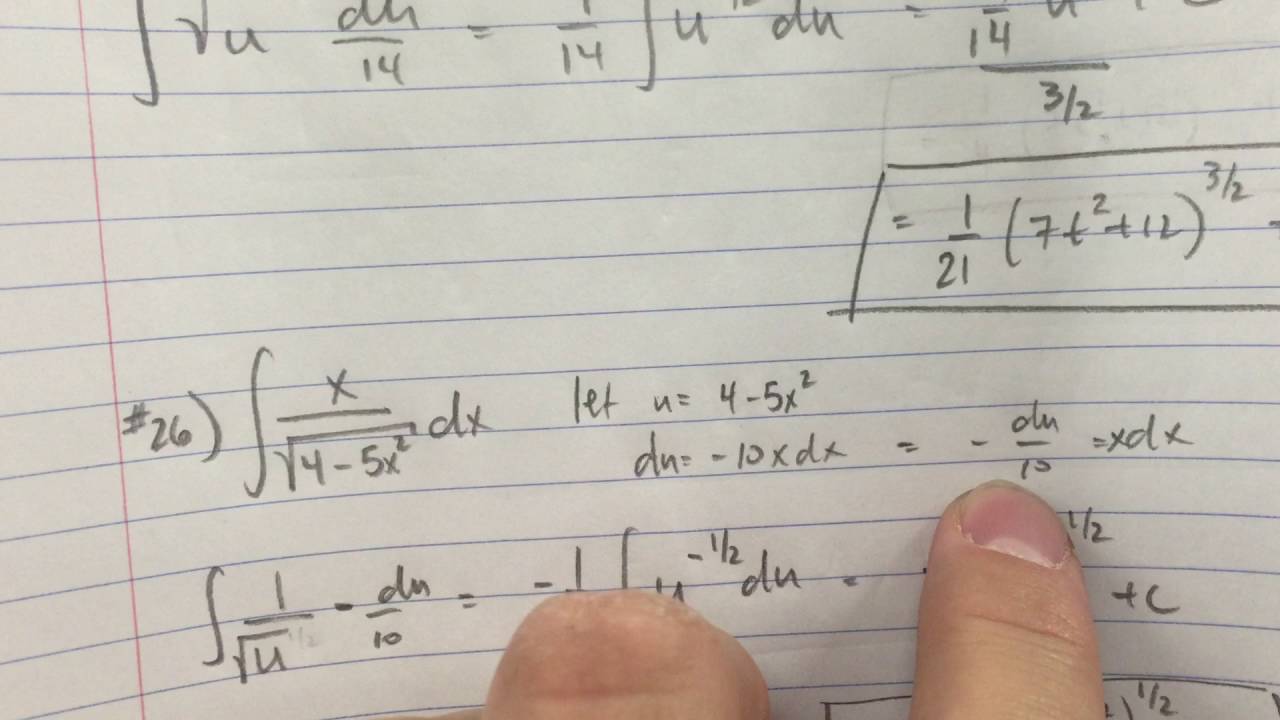 ∫ √u du/14 = 1/14 ∫ u^1/2 du = 1/14 u + C
3/2
= 1/21 (7t²+12)^3/2 +
#26) ∫ x/√(4-5x²) dx let u= 4-5x²
du= -10xdx = - du/10 =xdx
∫ 1/√u - du/10 = -1 ∫ u^-1/2 du = ^1/2 +C
)^1/2